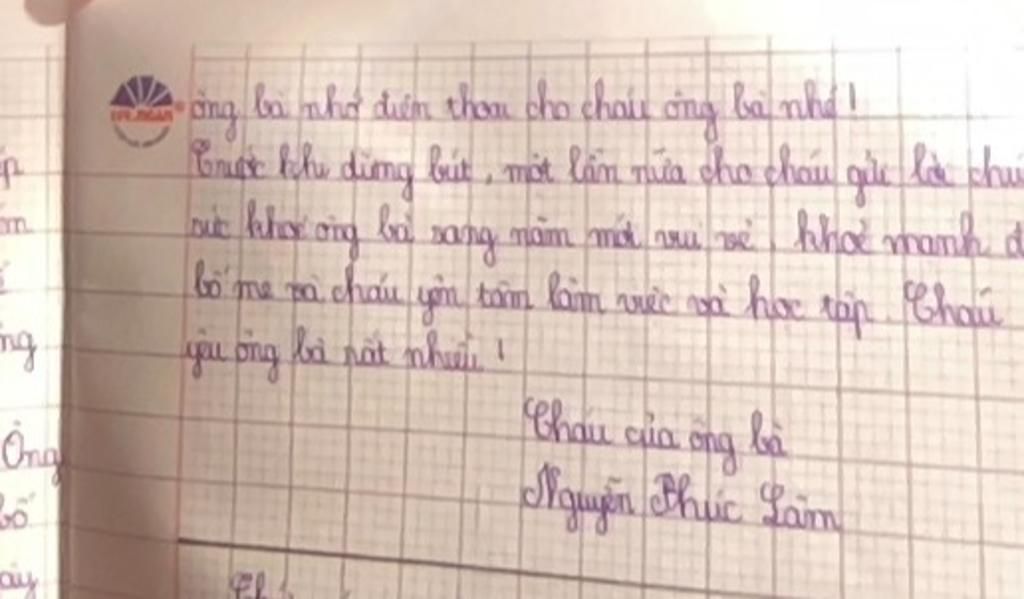 ông bà nhớ điện thoại cho cháu ông bà nhé!
Trước khi dừng bút, một lần nữa cho cháu gửi lời chúc
sức khoẻ ông bà sang năm mới vui vẻ, khoẻ mạnh để
bố mẹ và cháu yên tâm làm việc và học tập. Cháu
yêu ông bà rất nhiều!
Cháu của ông bà
Nguyễn Phúc Lâm
ng
Ông
bố